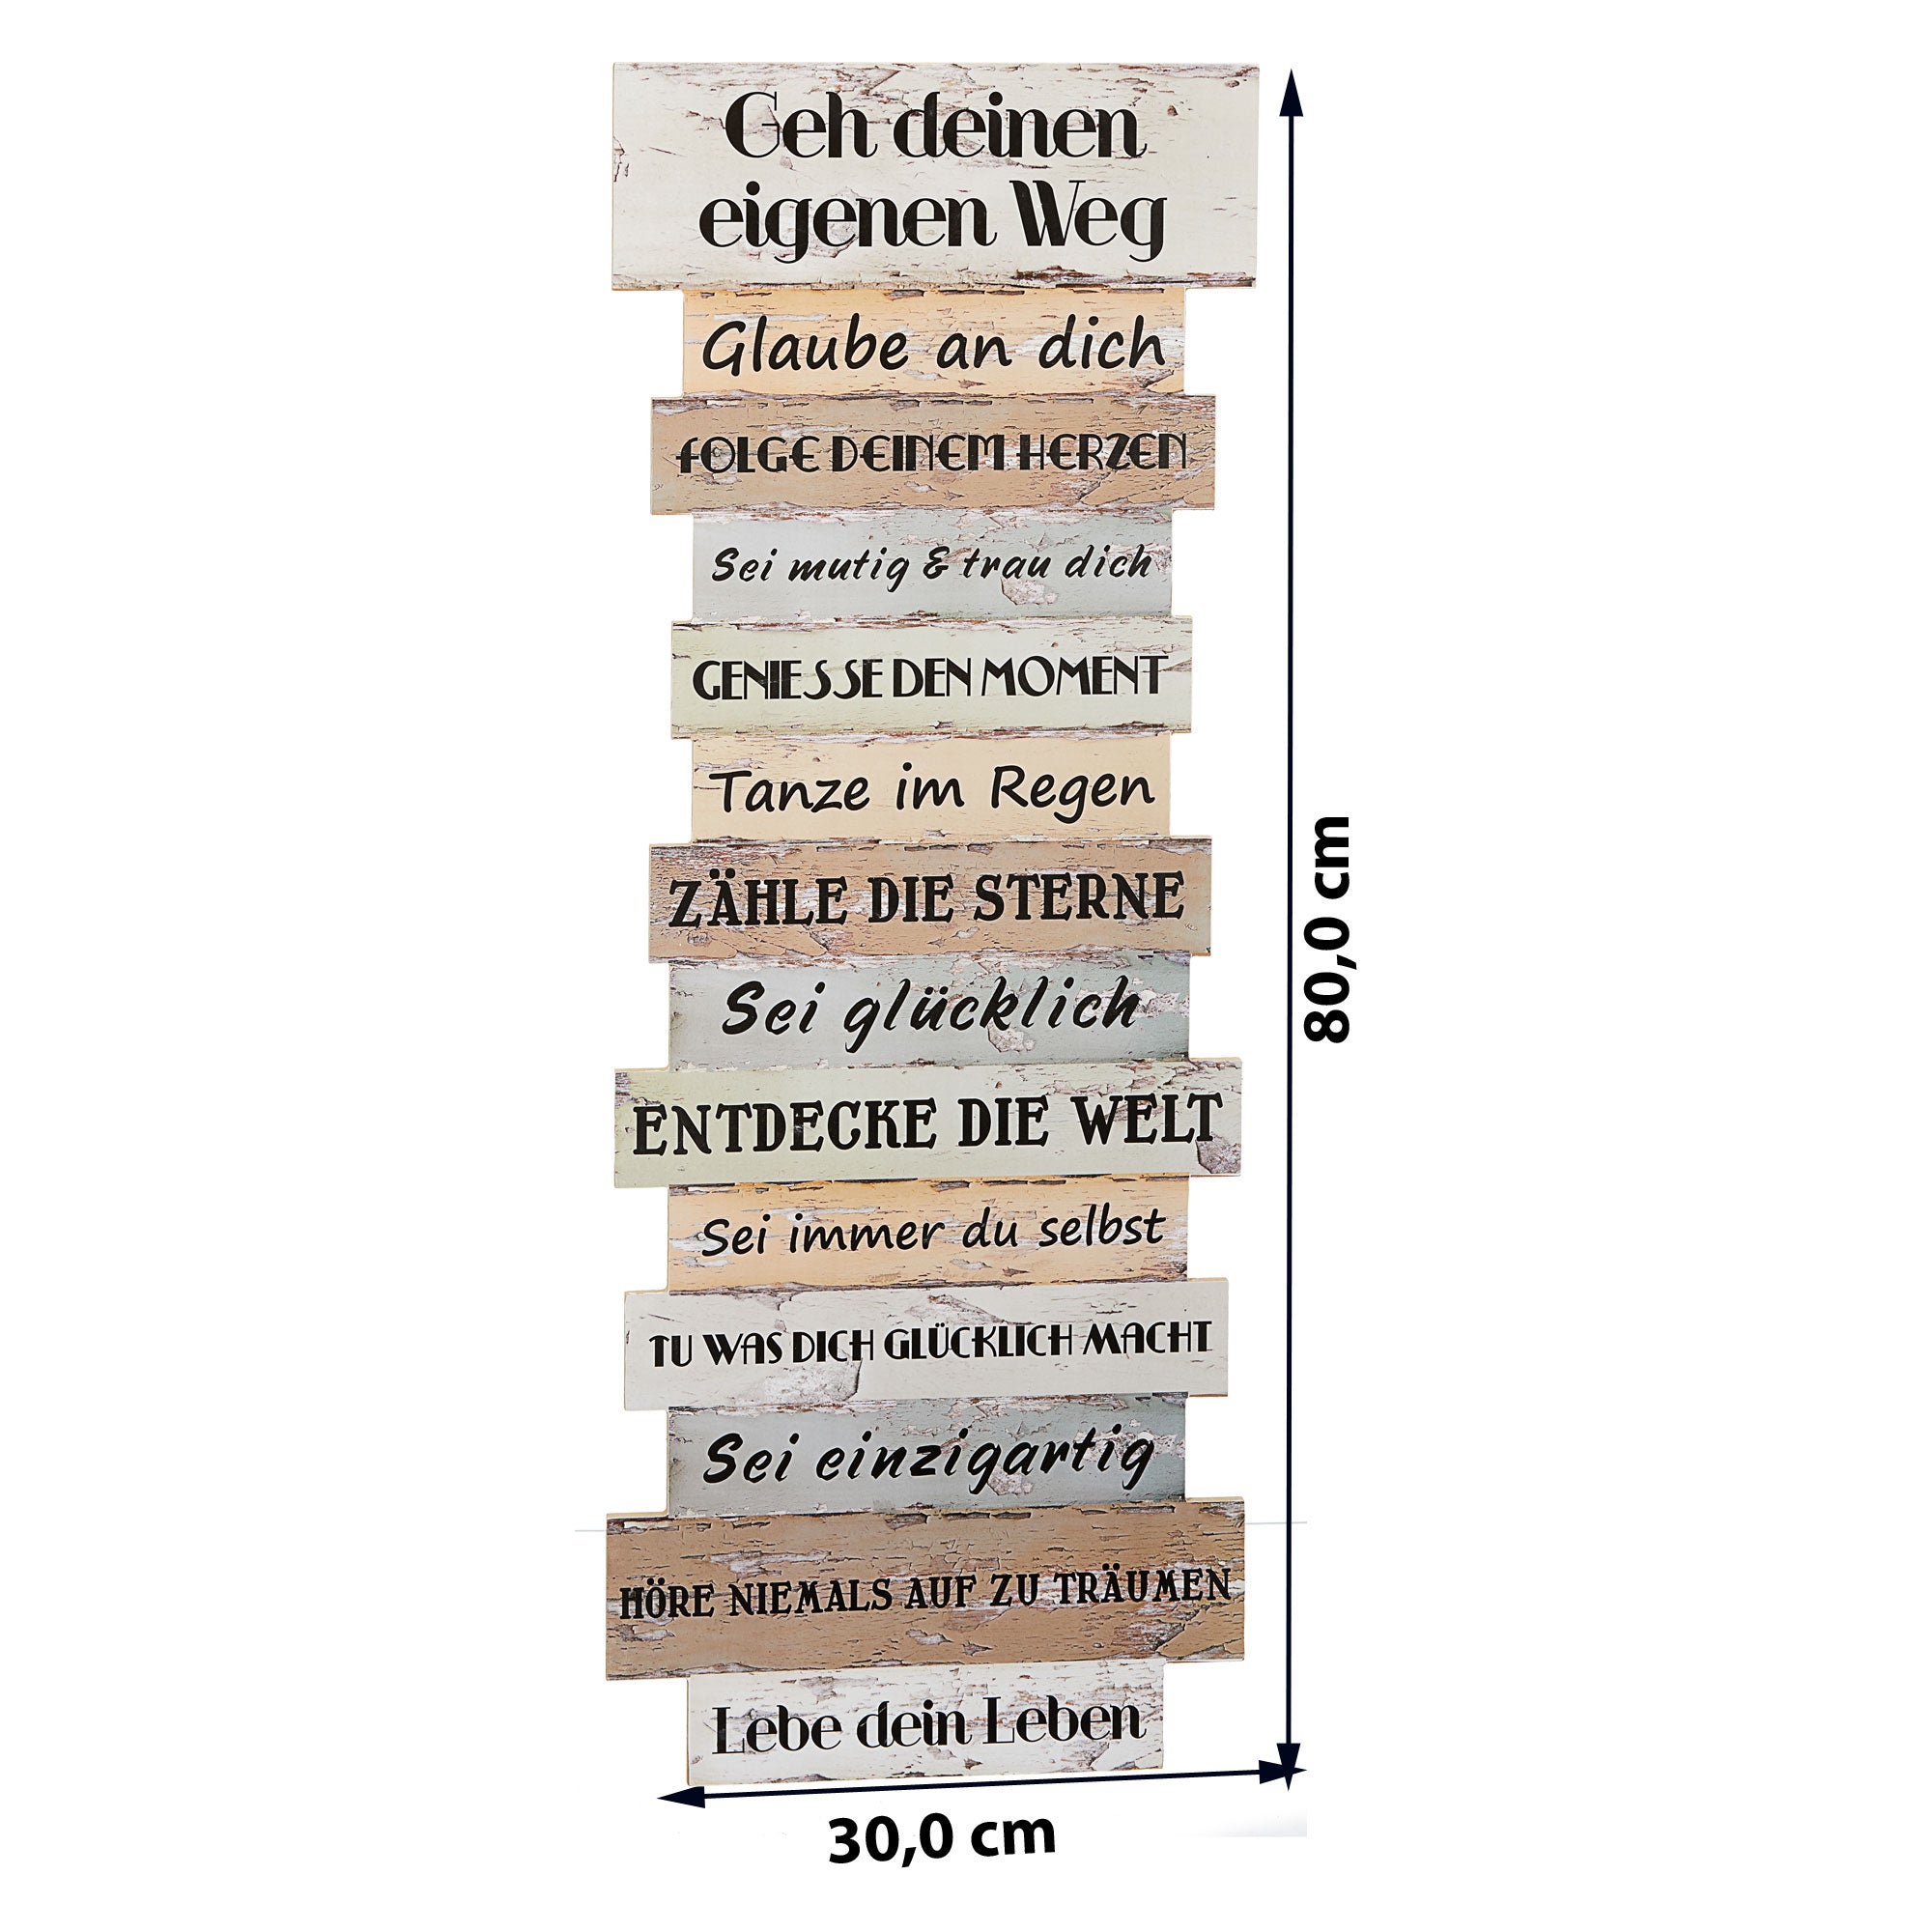 Geh deinen
eigenen Weg
Glaube an dich
FOLGE DEINEM HERZEN
Sei mutig & trau dich
GENIESSE DEN MOMENT
Tanze im Regen
ZÄHLE DIE STERNE
Sei glücklich
ENTDECKE DIE WELT
Sei immer du selbst
TU WAS DICH GLÜCKLICH MACHT
Sei einzigartig
HÖRE NIEMALS AUF ZU TRÄUMEN
Lebe dein Leben
80,0 cm
30,0 cm